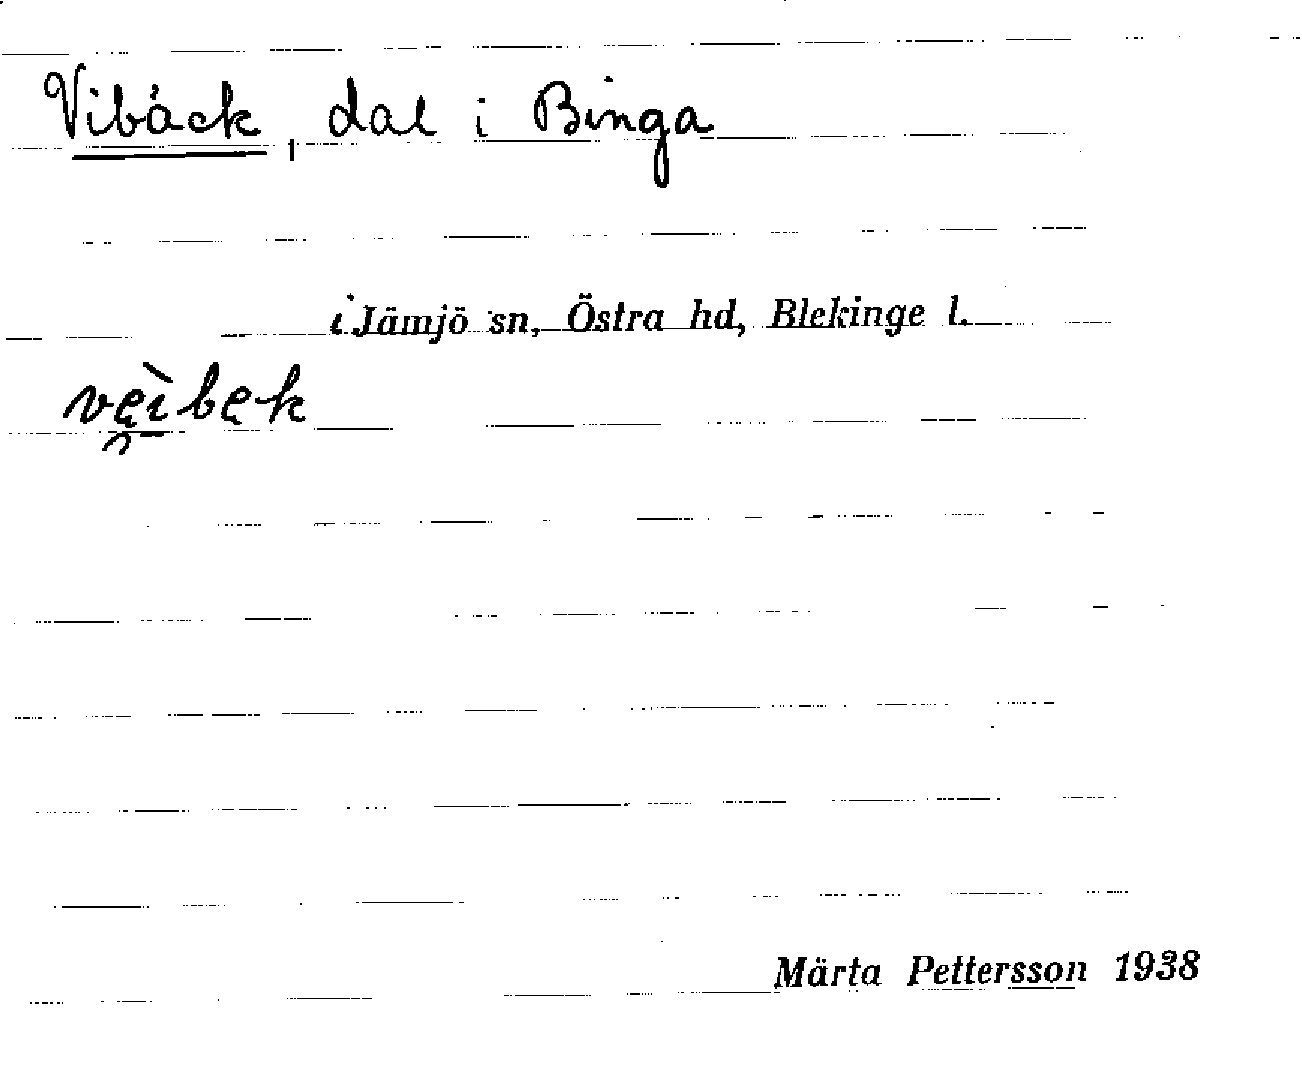 Vibäck, dal i Binga
i Jämjö sn, Östra hd, Blekinge l.
vęìbęk
Märta Pettersson 1938